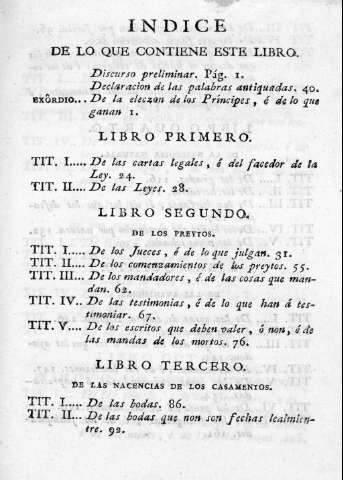 INDICE
DE LO QUE CONTIENE ESTE LIBRO.
Discurso preliminar. Pág. 1.
Declaracion de las palabras antiquadas. 40.
EXÔRDIO... De la eleczon de los Príncipes, é de lo que
ganan 1.
LIBRO PRIMERO.
TIT. I..... De las cartas legales, é del facedor de la
Ley. 24.
TIT. II.... De las Leyes. 28.
LIBRO SEGUNDO.
DE LOS PREYTOS.
TIT. I..... De los Jueces, é de lo que julgan. 31.
TIT. II.... De los comenzamientos de los preytos. 55.
TIT. III... De los mandadores, é de las cosas que man-
dan. 62.
TIT. IV.. De las testimonias, é de lo que han á tes-
timoniar. 67.
TIT. V.... De los escritos que deben valer, ó non, é de
las mandas de los mortos. 76.
LIBRO TERCERO.
DE LAS NACENCIAS DE LOS CASAMENTOS.
TIT. I..... De las bodas. 86.
TIT. II... De las bodas que non son fechas lealmien-
tre. 92.